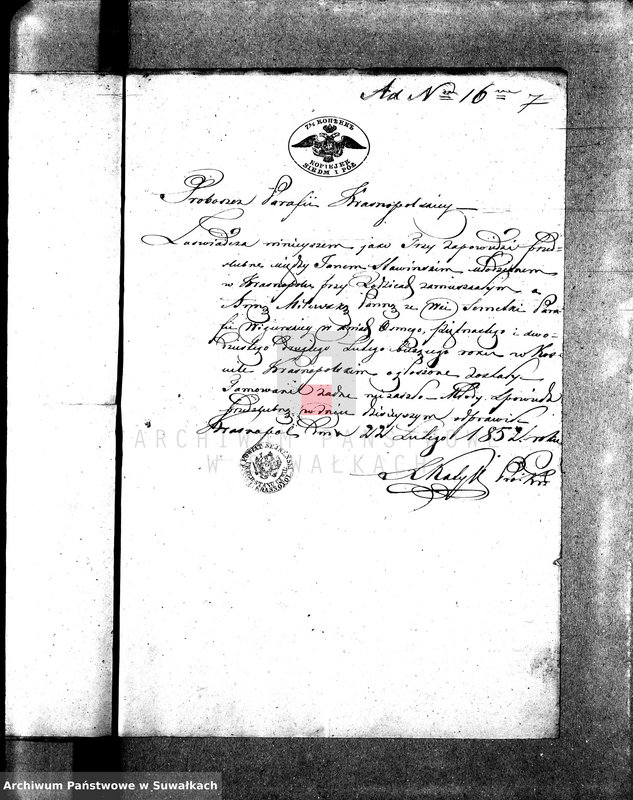 Ad N 16 7
7½ КОПѢЕКЪ
KOPIEJEK
SIEDM I PÓŁ
Proboszcz Parafii Krasnopolskiey
Zaświadcza niniejszem jako Trzy zapowiedzi Przed-
ślubne między Janem Sławinskim urodzonym
w Krasnopolu przy Rodzicach zamieszkałym a
Anną Milewską Panną ze Wsi Serwetki Para-
fii Wigierskiey w dniach Osmego, Piętnastego i dwu-
dziestego Drugiego Lutego bieżącego roku w Koś-
ciele Krasnopolskim ogłoszone zostały
Tamowanie żadne nie zaszło Młody Spowiedź
Przedślubną w dniu dzisiejszym odprawił
Krasnopol Dnia 22 Lutego 1852 roku
ARCHIWUM PAŃSTWOWE
W SUWAŁKACH
Archiwum Państwowe w Suwałkach